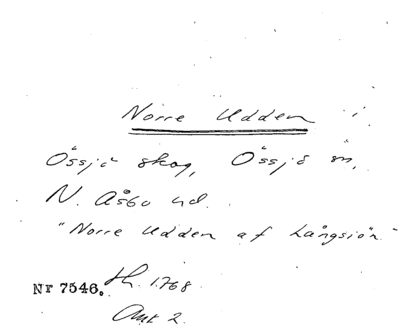 Norre Udden
Össjö skog, Össjö sn,
N. Åsbo hd.
"Norre Udden af Långsiön"
Nr 7546. Sh. 1768
Akt 2.